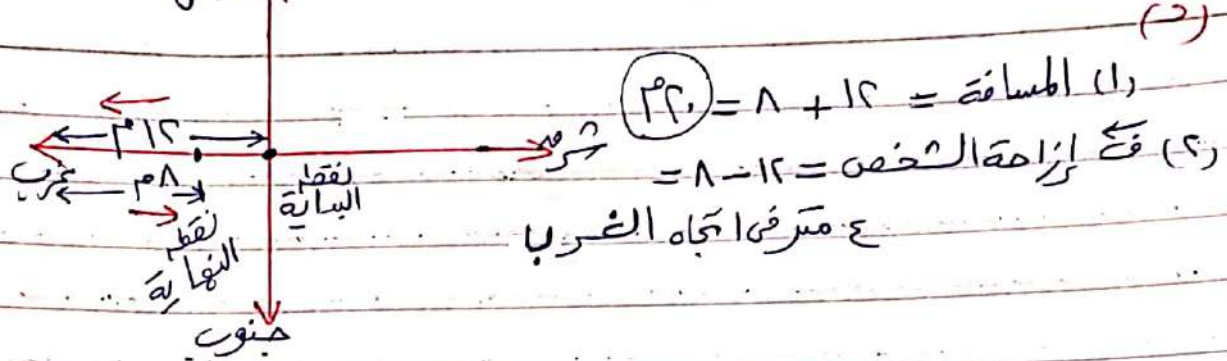 (ب)
(١) المسافة = ١٢ + ٨ = ٢٠م
(٢) ف إزاحة الشخص = ١٢ - ٨ =
٤ متر في اتجاه الغرب
شرق
١٢م
غرب
٨م
نقطة
البداية
نقطة
النهاية
جنوب